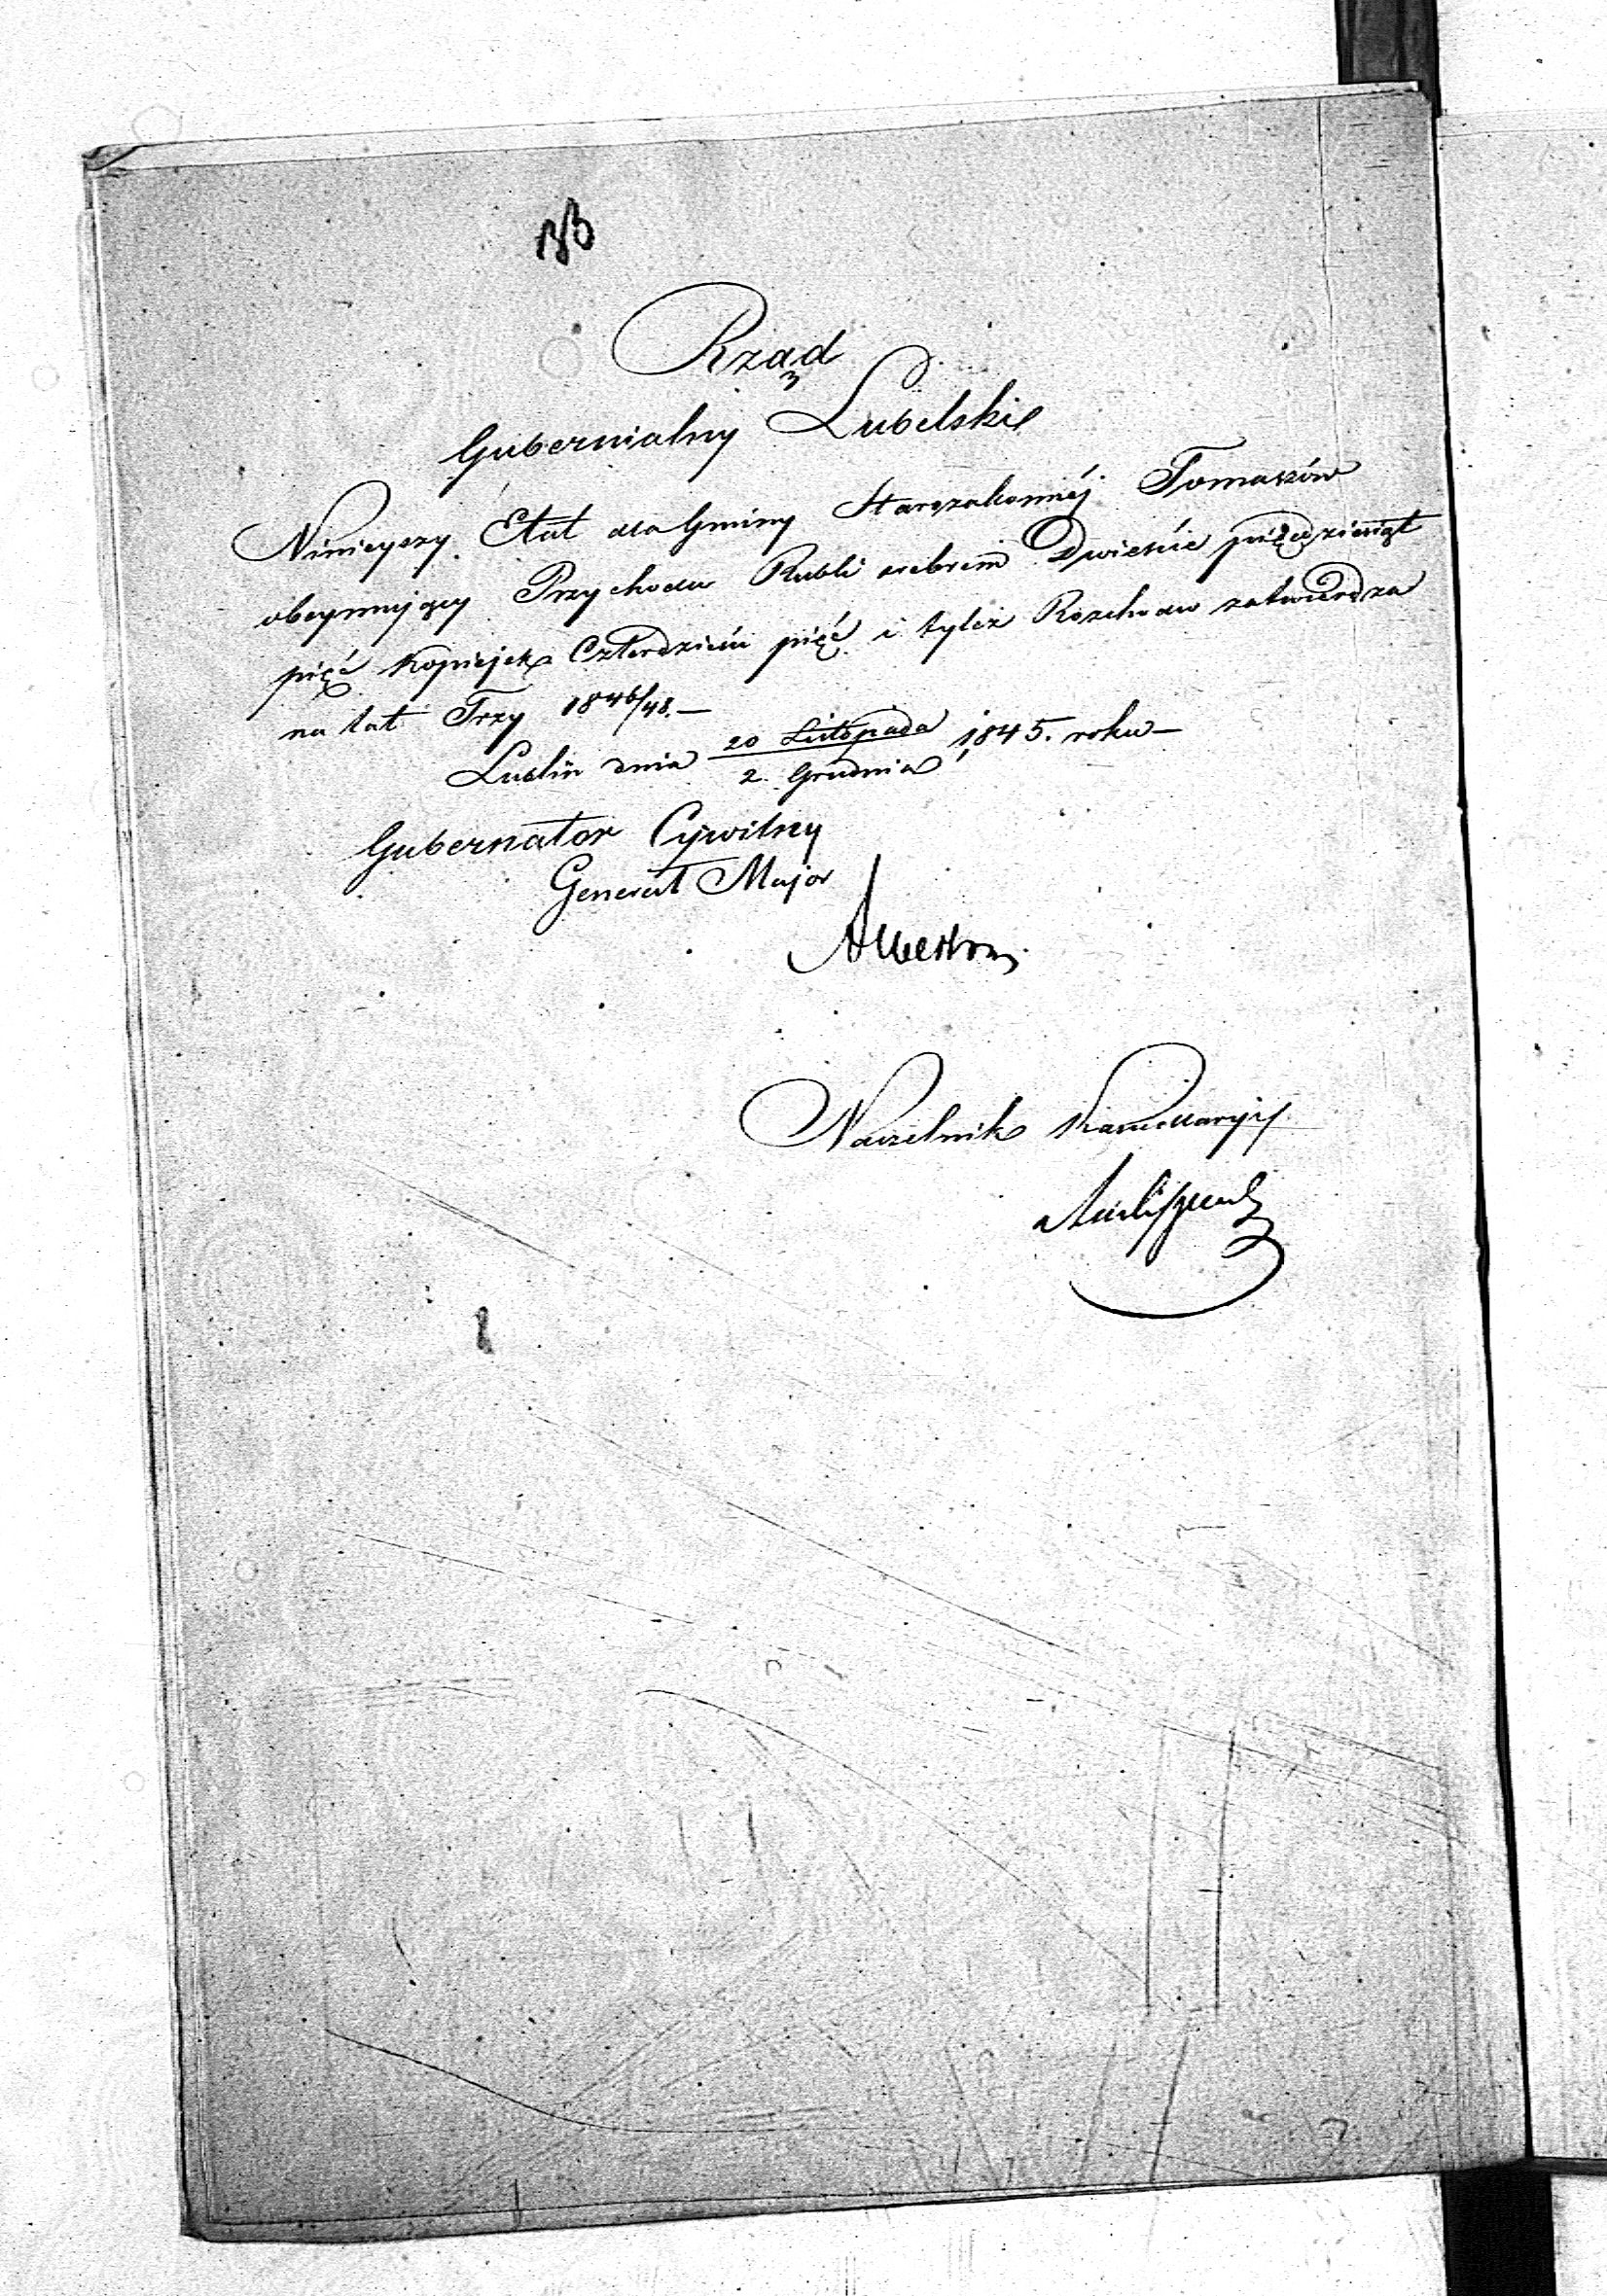 Rząd
Gubernialny Lubelski
Ninieyszy Etat dla Gminy Starozakonnéj Tomaszów
obeymujący Przychodu Rubli srebrem Dwieście pięćdziesiąt
pięć Kopiejek Czterdzieści pięć i tyleż Rozchodu zatwierdza
na lat Trzy 1846/48.—
Lublin dnia 20 Listopada / 2. Grudnia 1845. roku—
Gubernator Cywilny
Generał Major
Naczelnik Kancellaryi